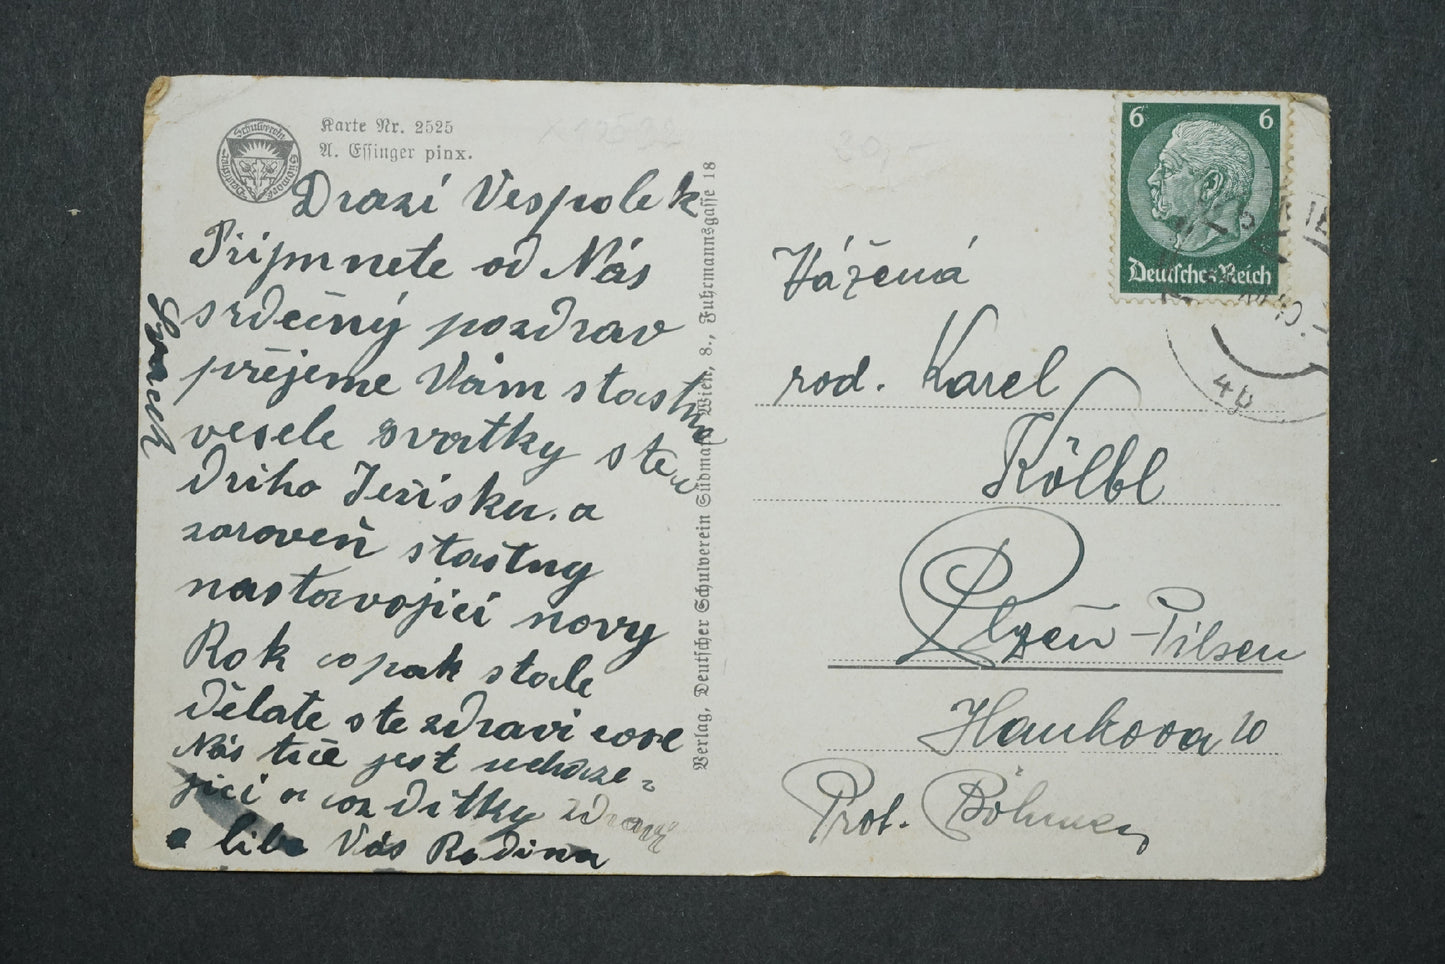 Karte Nr. 2525
A. Essinger pinx.
Drazí Vespolek
Přijmnete od Nás
srdečný pozdrav
přejeme Vám stastne
vesele svatky ste
driho Ježísku. a
zaroveň stastny
nastavojicí novy
Rok co pak stale
Dělate ste zdravi
Nás tiče jest uchaze-
jicí a co dítky zdravi
a liba Vás Rodina
Verlag, Deutscher Schulverein Südmark, Wien, 8., Fuhrmannsgasse 18
6 6
Deutsches Reich
40
4b
Vážená
rod. Karel
Kölbl
Plzeň - Pilsen
Hankova 10
Prot. Böhmen